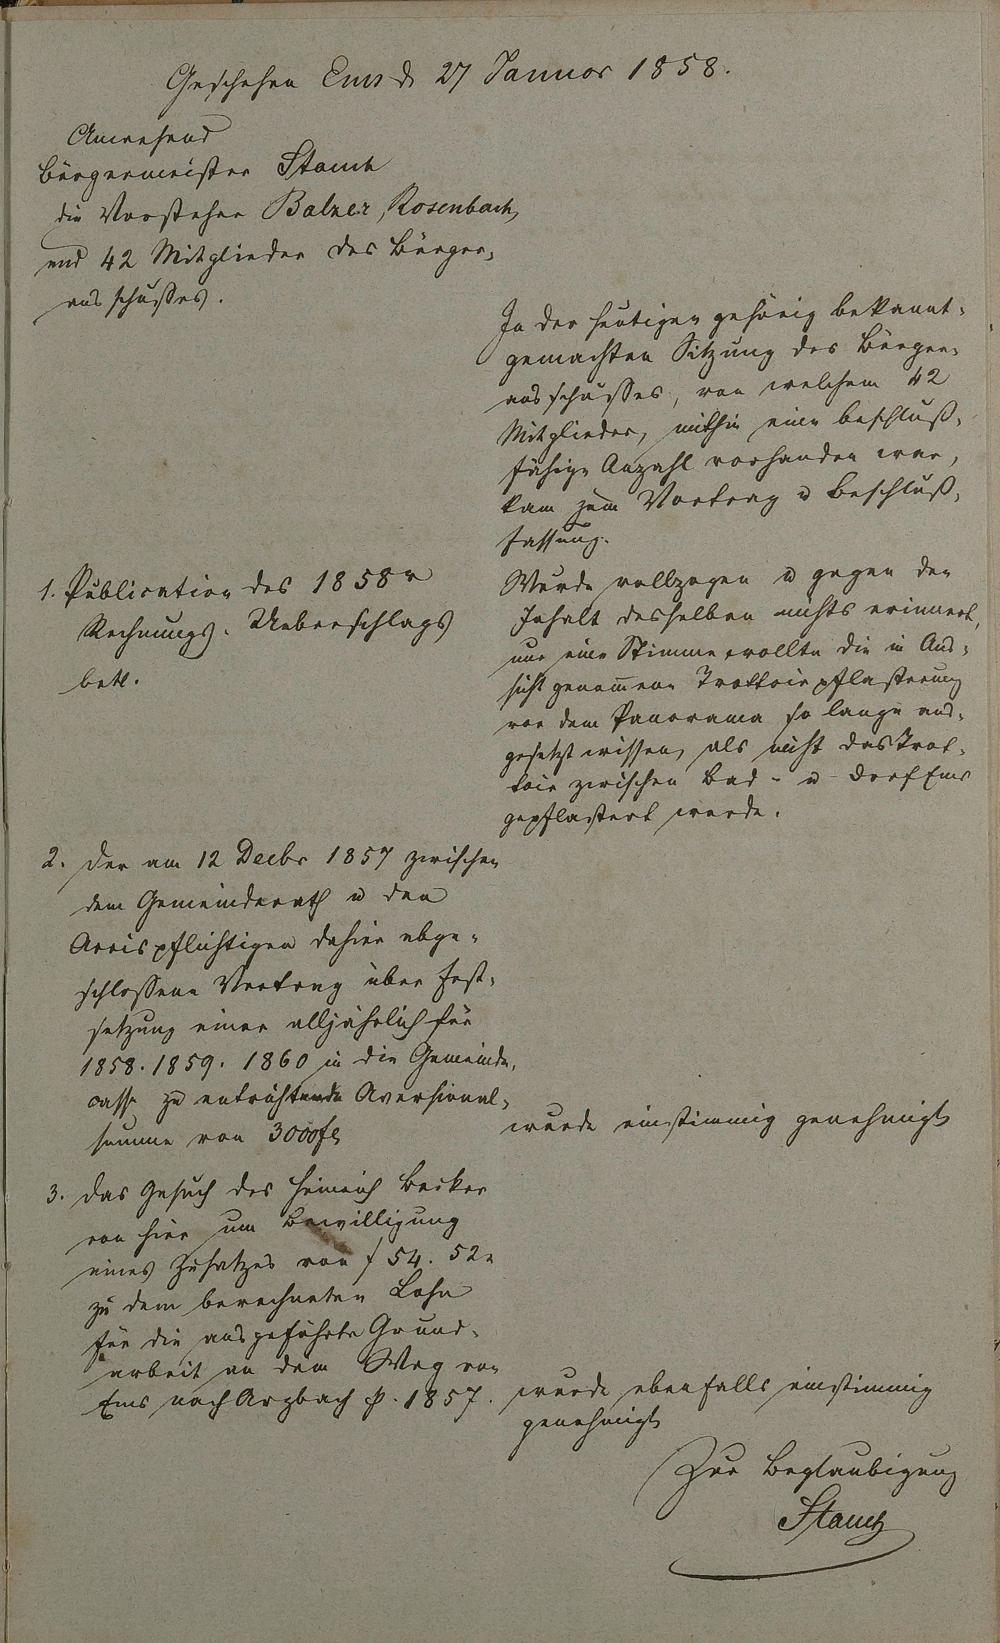 Geschehen Ems d 27 Januar 1858.
Anwesend
Bürgermeister Stamm
die Vorsteher Balzer, Rosenbach,
und 42 Mitglieder des Bürger-
ausschußes.
In der heutigen gehörig bekannt-
gemachten Sitzung des Bürger-
ausschußes, von welchem 42
Mitglieder, mithin eine beschluß-
fähige Anzahl vorhanden war,
kam zum Vortrag u Beschluß-
fassung.
1. Publication des 1858r
Rechnungs-Ueberschlags
betr.
Wurde vollzogen u gegen den
Inhalt desselben nichts erinnert,
nur eine Stimme wollte die in Aus-
sicht genom̅ene Trottoirpflasterung
vor dem Panorama so lange aus-
gesetzt wissen, als nicht das Trot-
toir zwischen Bad- u Dorf Ems
gepflastert werde.
2. Der am 12 Decbr 1857 zwischen
dem Gemeinderath u den
Accispflichtigen dahier abge-
schlossene Vertrag über Fest-
setzung einer alljährlich für
1858. 1859. 1860 in die Gemeinde-
casse zu entrichtende Aversional-
summe von 3000 fl
wurde einstimmig genehmigt
3. Das Gesuch des Heinrich Becker
von hier um Bewilligung
eines Zusatzes von f 54. 52x
zu dem berechneten Lohn
für die ausgeführte Grund-
arbeit an dem Weg von
Ems nach Arzbach p. 1857.
wurde ebenfalls einstimmig
genehmigt
Zur Beglaubigung